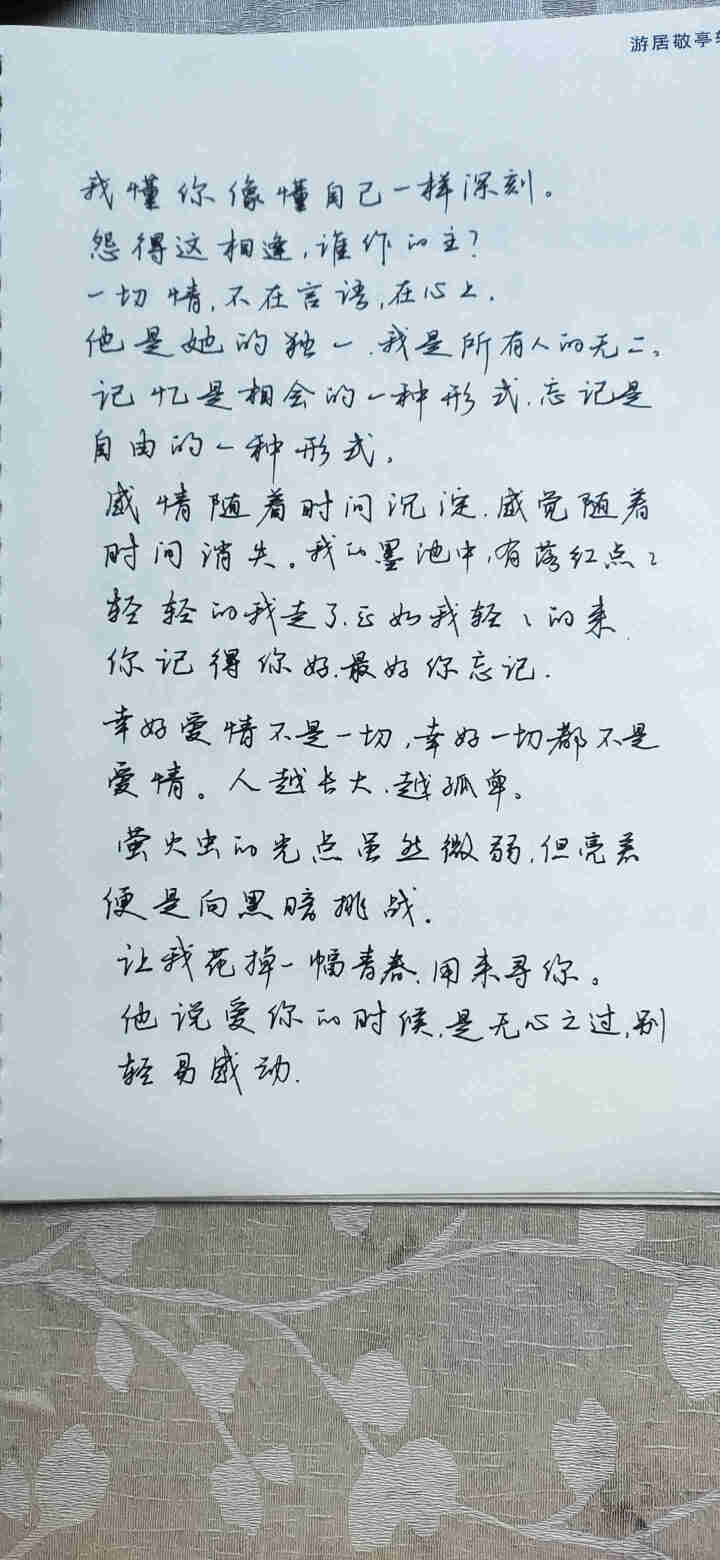 游居敬亭
我懂你像懂自己一样深刻。
怨得这相逢,谁作的主?
一切情,不在言语,在心上.
他是她的独一.我是所有人的无二。
记忆是相会的一种形式.忘记是
自由的一种形式。
感情随着时间沉淀.感觉随着
时间消失。我的墨池中,有落红点〻
轻轻的我走了.正如我轻〻的来.
你记得你好.最好你忘记.
幸好爱情不是一切,幸好一切都不是
爱情。人越长大.越孤单。
萤火虫的光点虽然微弱.但亮着
便是向黑暗挑战.
让我花掉一幅青春.用来寻你。
他说爱你的时候.是无心之过,别
轻易感动.